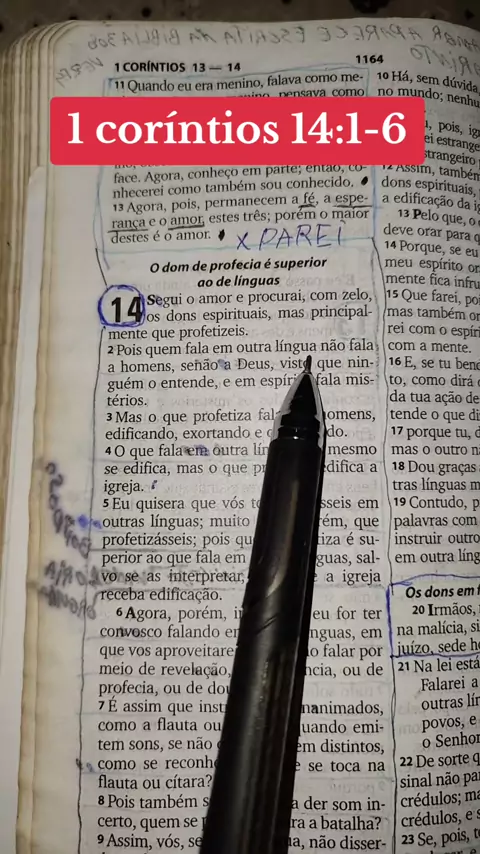 AMOR APARECE ESCRITA NA BIBLIA 300
1 CORÍNTIOS 13 — 14
1164
11 Quando eu era menino, falava como me-
pensava como
1 coríntios 14:1-6
face. Agora, conheço em parte; então, co-
nhecerei como também sou conhecido.
13 Agora, pois, permanecem a fé, a espe-
rança e o amor, estes três; porém o maior
destes é o amor.
X PAREI
O dom de profecia é superior
ao de línguas
14 Segui o amor e procurai, com zelo,
os dons espirituais, mas principal-
mente que profetizeis.
2 Pois quem fala em outra língua não fala
a homens, senão a Deus, visto que nin-
guém o entende, e em espíri fala mis-
térios.
3 Mas o que profetiza fal omens,
edificando, exortando e do.
4 O que fala em outra lín mesmo
se edifica, mas o que p edifica a
igreja.
5 Eu quisera que vós t sseis em
outras línguas; muito rém, que
profetizásseis; pois qu tiza é su-
perior ao que fala em guas, sal-
vo se as interpretar, a igreja
receba edificação.
6 Agora, porém, i eu for ter
convosco falando e nguas, em
que vos aproveitare o falar por
meio de revelação, ncia, ou de
profecia, ou de dou
7 É assim que inst nanimados,
como a flauta ou quando emi-
tem sons, se não em distintos,
como se reconh e se toca na
flauta ou cítara?
8 Pois também s a der som in-
certo, quem se p ra a batalha?
9 Assim, vós, se ua, não disser-
10 Há, sem dúvida,
no mundo; nenhu
, pois, ig
ei estrange
strangeiro
12 Assim, também
dons espirituais,
a edificação da i
13 Pelo que, o
deve orar para q
14 Porque, se eu
meu espírito or
mente fica infru
15 Que farei, poi
mas também or
rei com o espíri
com a mente.
16 E, se tu bene
to, como dirá o
da tua ação de
tende o que di
17 porque tu, d
mas o outro n
18 Dou graças a
tras línguas m
19 Contudo, p
palavras com
instruir outro
em outra líng
Os dons em f
20 Irmãos,
na malícia, si
juízo, sede h
21 Na lei está
Falarei a
outras lín
povos, e
o Senhor
22 De sorte q
sinal não pa
crédulos; ma
crédulos, e s
23 Se, pois, to